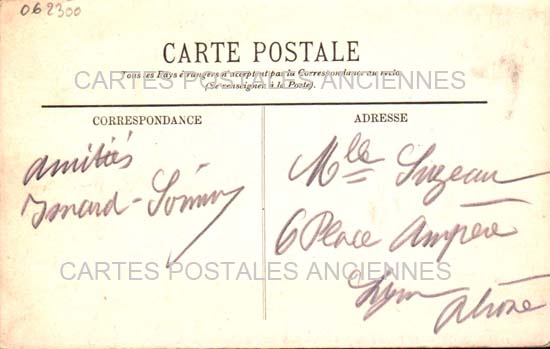 062300
CARTE POSTALE
Tous les Pays étrangers n'acceptent pas la Correspondance au recto
(Se renseigner à la Poste).
CARTES POSTALES ANCIENNES
CORRESPONDANCE
ADRESSE
Amitiés
Isnard-
Mlle Suzeau
6 Place Ampère
Lyon
Rhône
CARTES POSTALES ANCIENNES